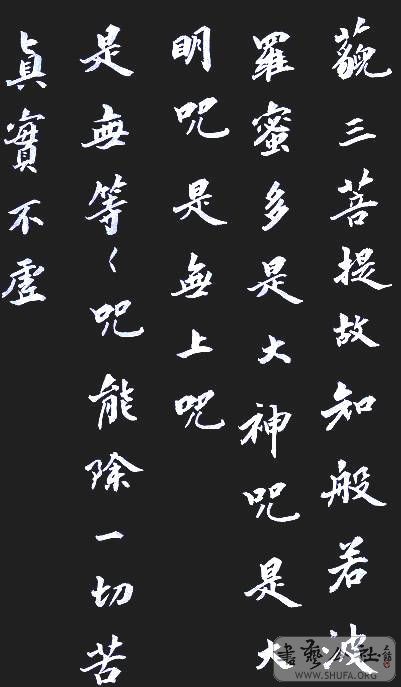 藐三菩提故知般若波
羅蜜多是大神咒是大
明咒是無上咒
是無等〻咒能除一切苦
真實不虛
書藝公社
WWW.SHUFA.ORG